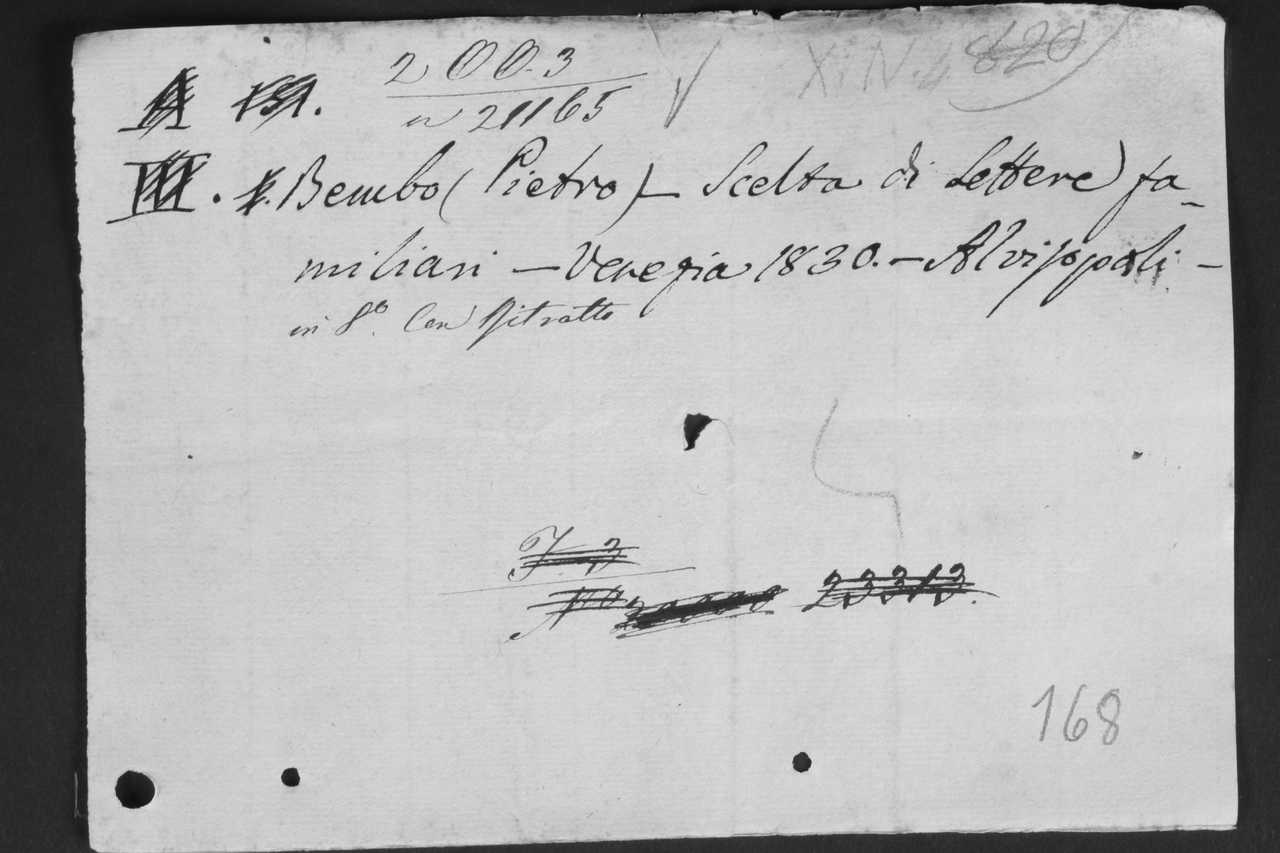 2 00.3
n 21165
XiN.4 820
III. Bembo (Pietro) - Scelta di Lettere fa-
miliari - Venezia 1830. - Alvisopoli -
in 8.° Con Ritratto
J 3
N° 23313.
168